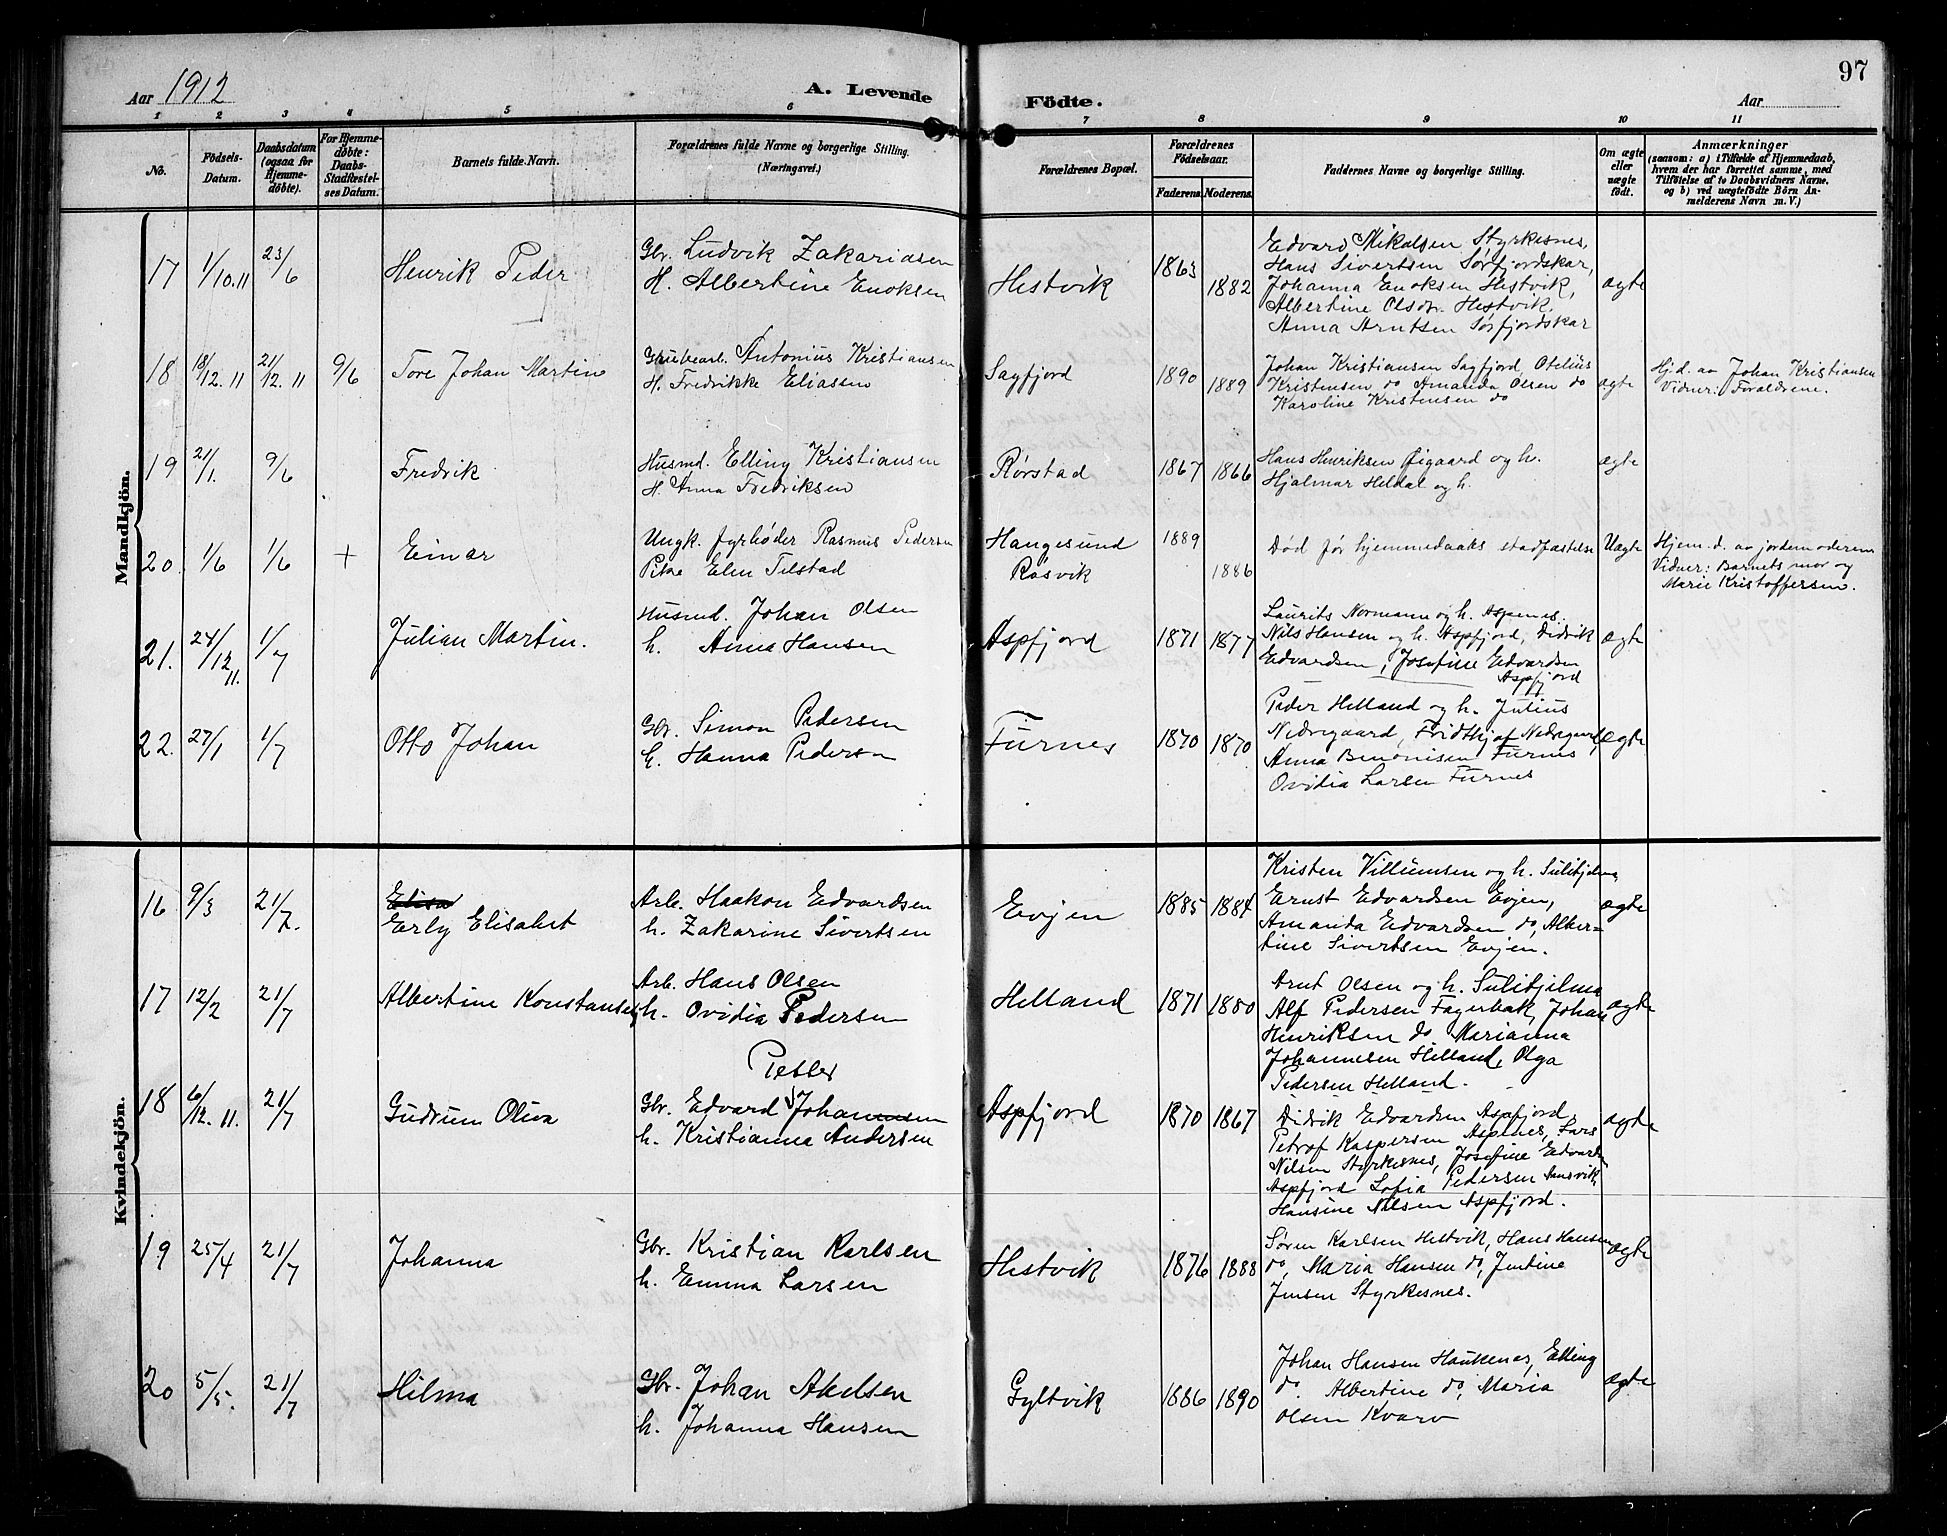 97
Aar 1912
A. Levende
Födte.
Aar
1 2 3 4 5 6 7 8 9 10 11
No.
Födsels-
Datum.
Daabsdatum
(ogsaa for
Hjemme-
döbte).
For Hjemme-
döbte:
Daabs-
Stadfæstel-
ses Datum.
Barnets fulde Navn.
Forældrenes fulde Navne og borgerlige Stilling.
(Næringsvei.)
Forældrenes Bopæl.
Forældrenes
Födselsaar.
Faderens. Moderens.
Faddernes Navne og borgerlige Stilling.
Om ægte
eller
uægte
födt.
Anmærkninger
(saasom: a) i Tilfælde af Hjemmedaab,
hvem der har forrettet samme, med
Tilföielse af to Daabsvidners Navne,
og b) ved uægtefödte Börn An-
melderens Navn m. V.)
Mandkjön.
17 1/10.11 23/6 Henrik Peder
Gbr. Ludvik Zakariasen
H. Albertine Enoksen
Hestvik 1863 1882
Edvard Mikalsen Styrkesnes,
Hans Sivertsen Sørfjordskar,
Johanna Enoksen Hestvik,
Albertine Olsdr. Hestvik.
Anna Arntsen Sørfjordskar
ægte
18 18/12.11 21/12.11 9/6 Tore Johan Martin
Grubearb. Antonius Kristiansen
H. Fredrikke Eliassen
Sagfjord 1890 1889
Johan Kristiansen Sagfjord, Otelius
Kristensen do Amanda Olsen do
Karoline Kristensen do
ægte
Hjd. av Johan Kristiansen
Vidner: Forældrene.
19 21/1. 9/6 Fredrik
Husmd. Elling Kristiansen
H. Anna Fredriksen
Rørstad 1867 1866
Hans Henriksen Øigaard og h.
Hjalmar Heldal og h.
ægte
20. 1/6 1/6 + Einar
Ungk. fyrbøder Rasmus Pedersen
Pike Elen Tilstad
Haugesund
Røsvik
1889 1886
Død før hjemmedaabs stadfæstelse
Uægte
Hjem. d. av jordemoderen
Vidner: Barnets mor og
Marie Kristoffersen.
21. 24/12 11. 1/7 Julian Martin.
Husmd. Johan Olsen
h. Anna Hansen
Aspfjord 1871 1877
Laurits Normann og h. Aspenes.
Nils Hansen og h. Aspfjord, Didrik
Edvardsen, Josefine Edvardsen
Aspfjord
ægte
22. 27/1 1/7 Otto Johan
Gbr. Simon Pedersen
h. Hanna Pedersen
Furnes 1870 1870
Peder Helland og h. Julius
Nedregaard, Fridthjof Nedregaard,
Anna Benonisen Furnes
Ovidia Larsen Furnes
ægte
Kvindekjön.
16 9/3 21/7. Elisa
Erly Elisabet
Arb. Haakon Edvardsen
h. Zakarine Sivertsen
Evjen 1885 1884
Kristen Villumsen og h. Sulitjelma
Ernst Edvardsen Evjen,
Amanda Edvardsen do, Alber=
tine Sivertsen Evjen.
ægte
17 12/2 21/7 Albertine Konstanse
Arb. Hans Olsen
h. Ovidia Pedersen
Helland 1871 1880
Arnt Olsen og h. Sulitjelma
Alf Pedersen Fagerbak, Johan
Henriksen do Marianna
Johannesen Helland, Olga
Pedersen Helland.
ægte
18 6/12.11. 21/7 Gudrun Oliva
Petter
Gbr. Edvard Johannsen
h. Kristianna Andersen
Aspfjord 1870 1867
Didrik Edvardsen Aspfjord,
Petrof Kaspersen Aspenes, Lars
Nilsen Styrkesnes, Josefine Edvardsen
Aspfjord Lofia Pedersen Aansvik,
Hansine Nilsen Aspfjord.
ægte
19 25/4 21/7 Johanna
Gbr. Kristian Karlsen
h. Emma Larsen
Hestvik 1876 1888
Søren Karlsen Hestvik, Hans Hansen
do, Maria Hansen do, Jentine
Jensen Styrkesnes.
ægte
20 5/5. 21/7 Hilma
Gbr. Johan Akelsen
h. Johanna Hansen
Gyltvik 1886 1890
Johan Hansen Haukenes, Elling
do. Albertine do, Maria
Olsen Kvarv
ægte